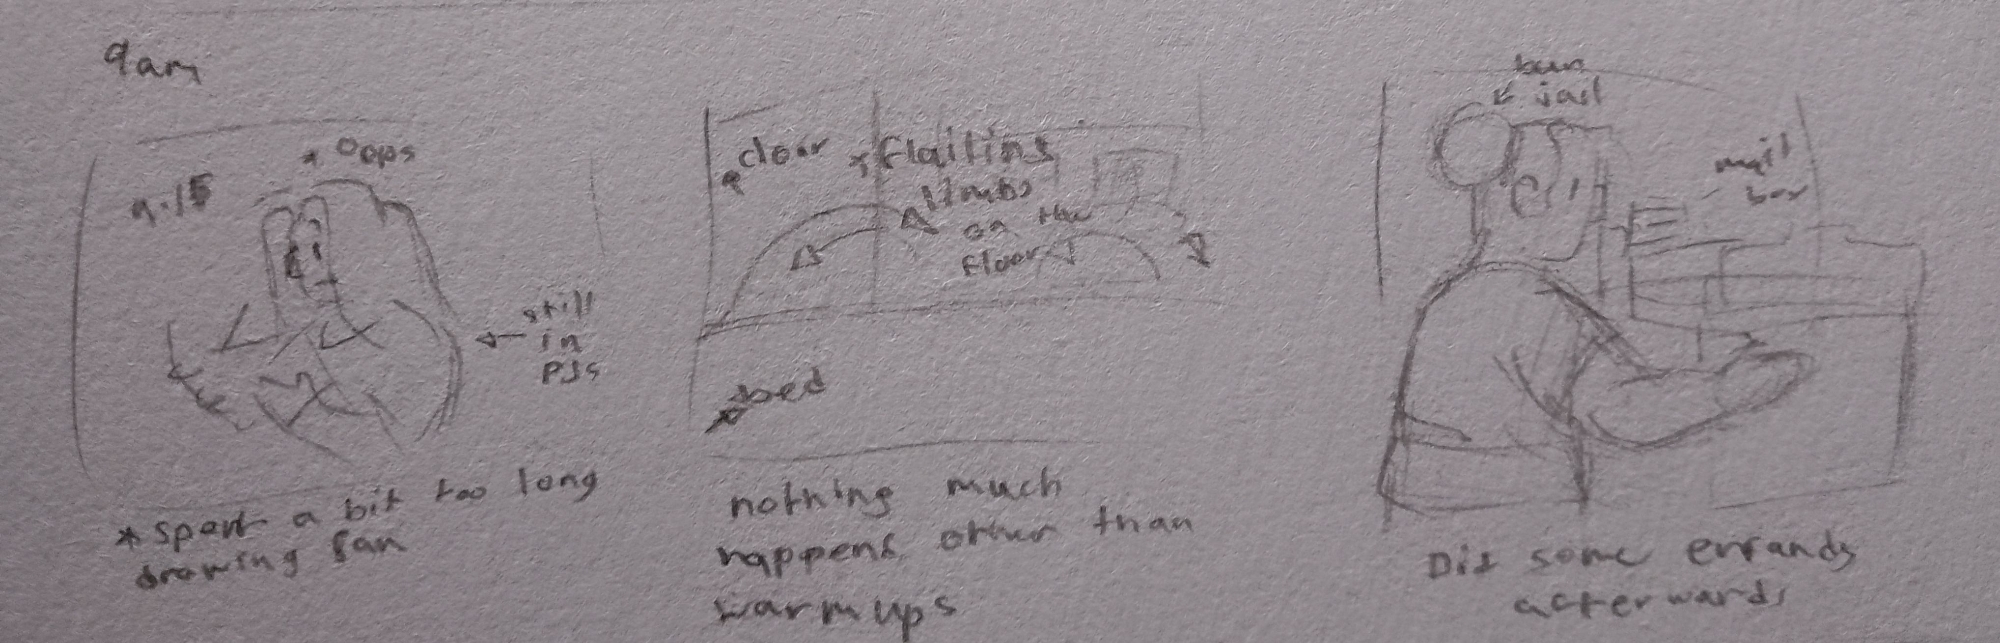 9am
9.15
* Oops
still
in
PJs
* spent a bit too long
drawing fan
door
* flailing
limbs
on the
floor
bed
nothing much
happens other than
warm ups
bun
jail
mail
box
Did some errands
afterwards